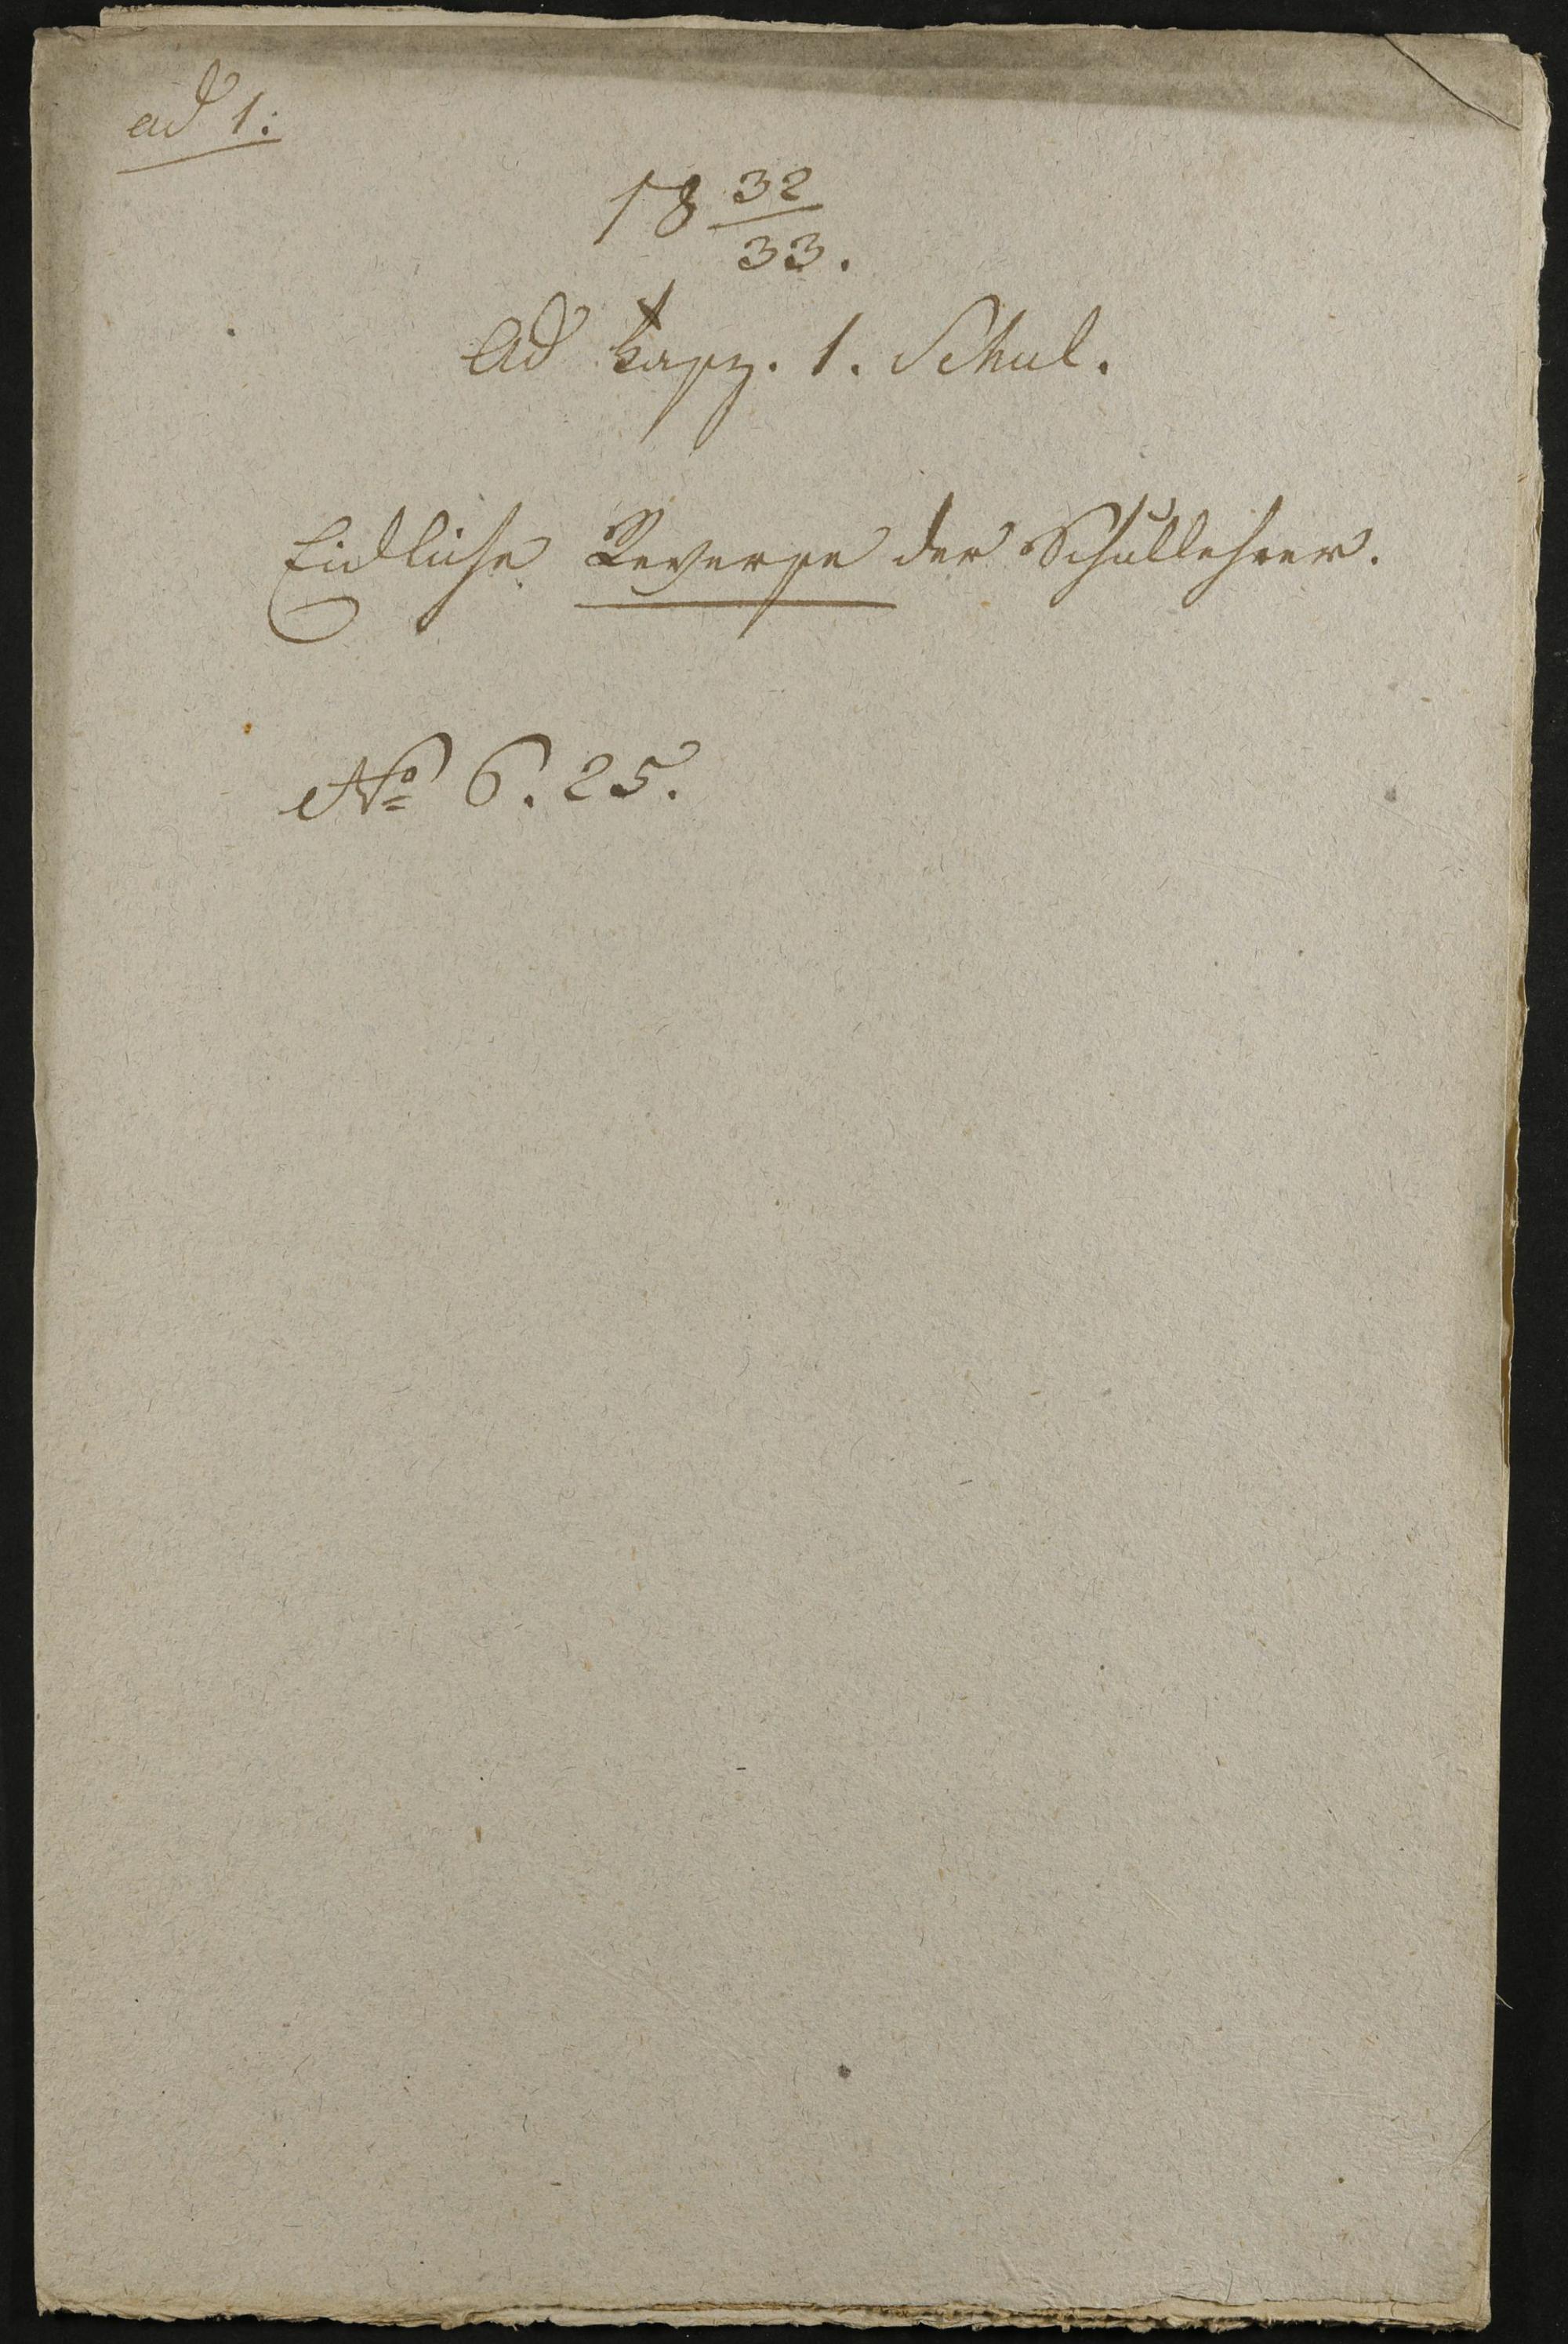 ad 1.
18 32/33.
Ad Fasz. 1. Schul.
Eidliche Reverse der Schullehrer.
No 6. 25.